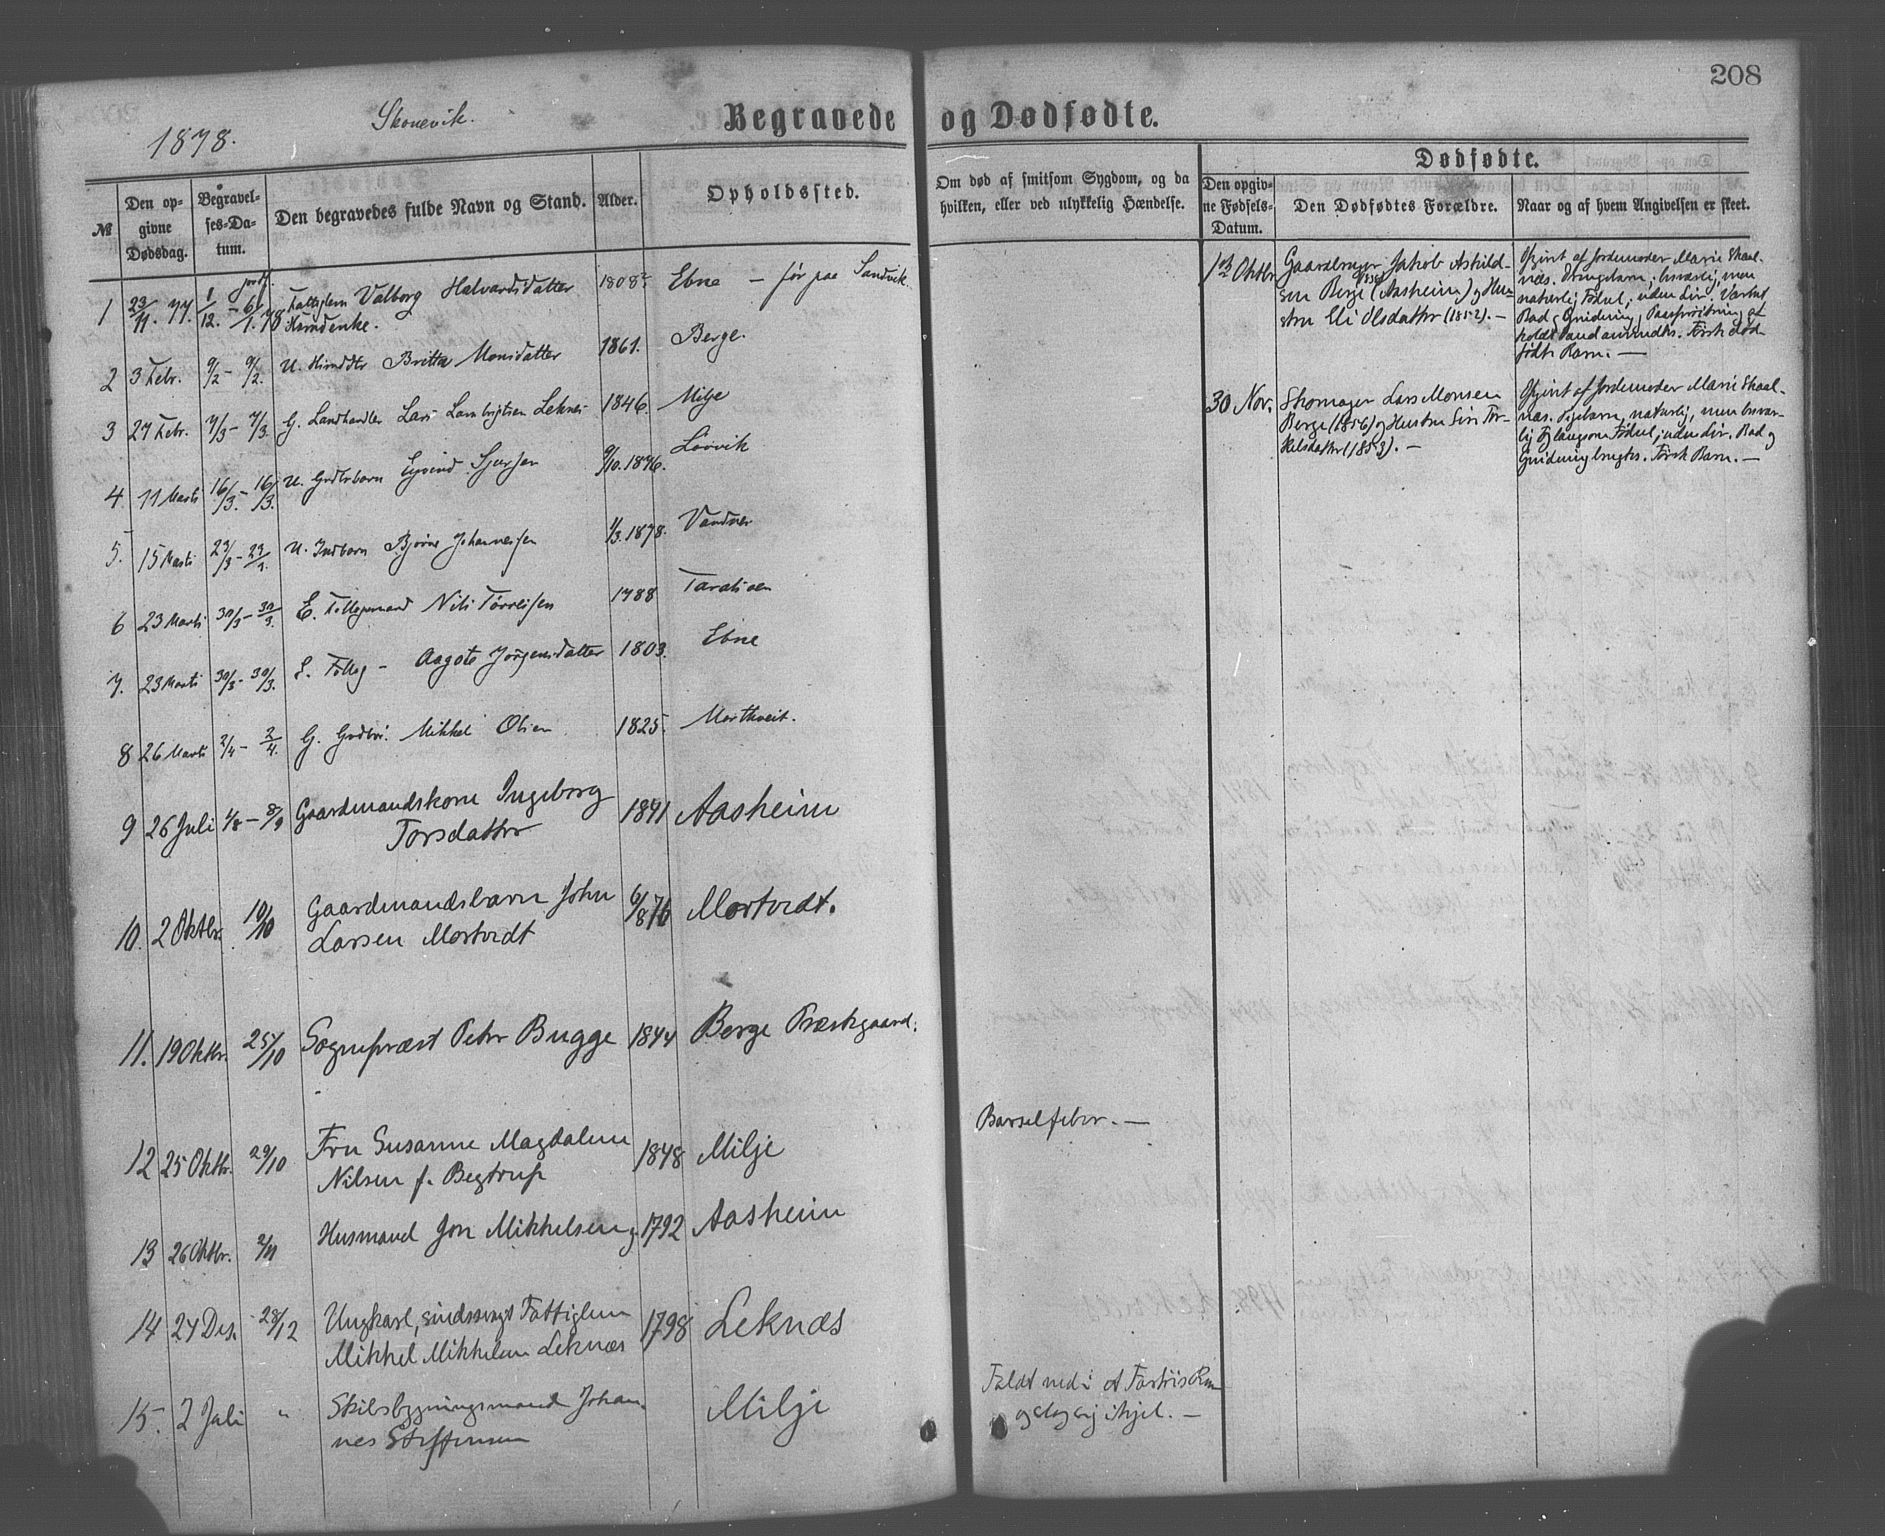 208
1878.
Skonevik.
Begravede og Dødfødte.
№
Den opgivne Dødsdag.
Begravelses-Datum.
Den begravedes fulde Navn og Stand.
Alder.
Opholdssted.
Om død af smitsom Sygdom, og da hvilken, eller ved ulykkelig Hændelse.
Dødfødte.
Den opgivne Fødsels-Datum.
Den Dødfødtes Forældre.
Naar og af hvem Angivelsen er skeet.
1 23/11. 77. 1/12. - 6/1. 78 Valborg Halvardsdatter 1808 Ebne - før paa Sandvik.
2 3 Febr. 9/2 - 9/2. U. Britta Monsdatter 1861. Berge.
3 27 Febr. 7/3 - 7/3. G. Landhandler Lars Lambrigtsen Leknes 1846. Milje
4 11 Marts 16/3. - 16/3. U. Eyvind Sjursen 9/10. 1876. Løvvik
5. 15 Marts 23/3 - U. Indbarn Johannessen 1/3. 1878.
6 23 Marts 30/3 - 30/3. E. Nils 1788
7. 23 Marts 30/3 - 30/3. E. - Aagote Jørgensdatter 1803. Ebne
8 26 Marts 2/4 - 2/4. G. Mikkel Olsen 1825. Mortveit.
9 26 Juli - 8/9 Gaardmandskone Ingeborg 1841 Aasheim
Torsdatter
10. 2 Oktbr. 10/10 Gaardmandsbarn John 6/8 76 Mortvedt.
Larsen Mortvedt
11. 19 Oktbr. 25/10 Sognepræst Peter Bugge 1844 Berge Præstegaard.
12 25 Oktbr. 29/10 Fru Susanne Magdalene 1848 Milje Barselfeber. —
Nilsen f. Begtrup
13 26 Oktbr. 2/11 Husmand Jon Mikkelsen 1792 Aasheim
14 24 Des. 28/12 Ungkarl, sindssvagt Fattiglem 1798 Leknæs
Mikkel Mikkelsen Leknæs
15. 2 Juli " Skibsbygningsmand Johan- Milje Faldt ned i et
nes Steffensen og slog sig ihjel. —
Oktbr Gaardbruger Jakob Askild-
sen Berge (Aasheim) og Hu-
stru Eli Olsdatter (1852). —
Opgivt af Jordemoder Marie Skaal-
næs. Drengebarn; besværlig, men
naturlig Fødsel; uden Liv. Varmt
Bad, Gnidning,
anvendtes. Første død-
fødte Barn. —
30 Nov. Skomager Lars Monsen
Berge (1856) og Hustru Siri Tor-
kelsdatter (1853). —
Opgivt af Jordemoder Marie Skaal-
næs. Pigebarn, naturlig, men besvær-
lig og langsom Fødsel; uden Liv. Bad og
Gnidning brugtes. Første Barn. —